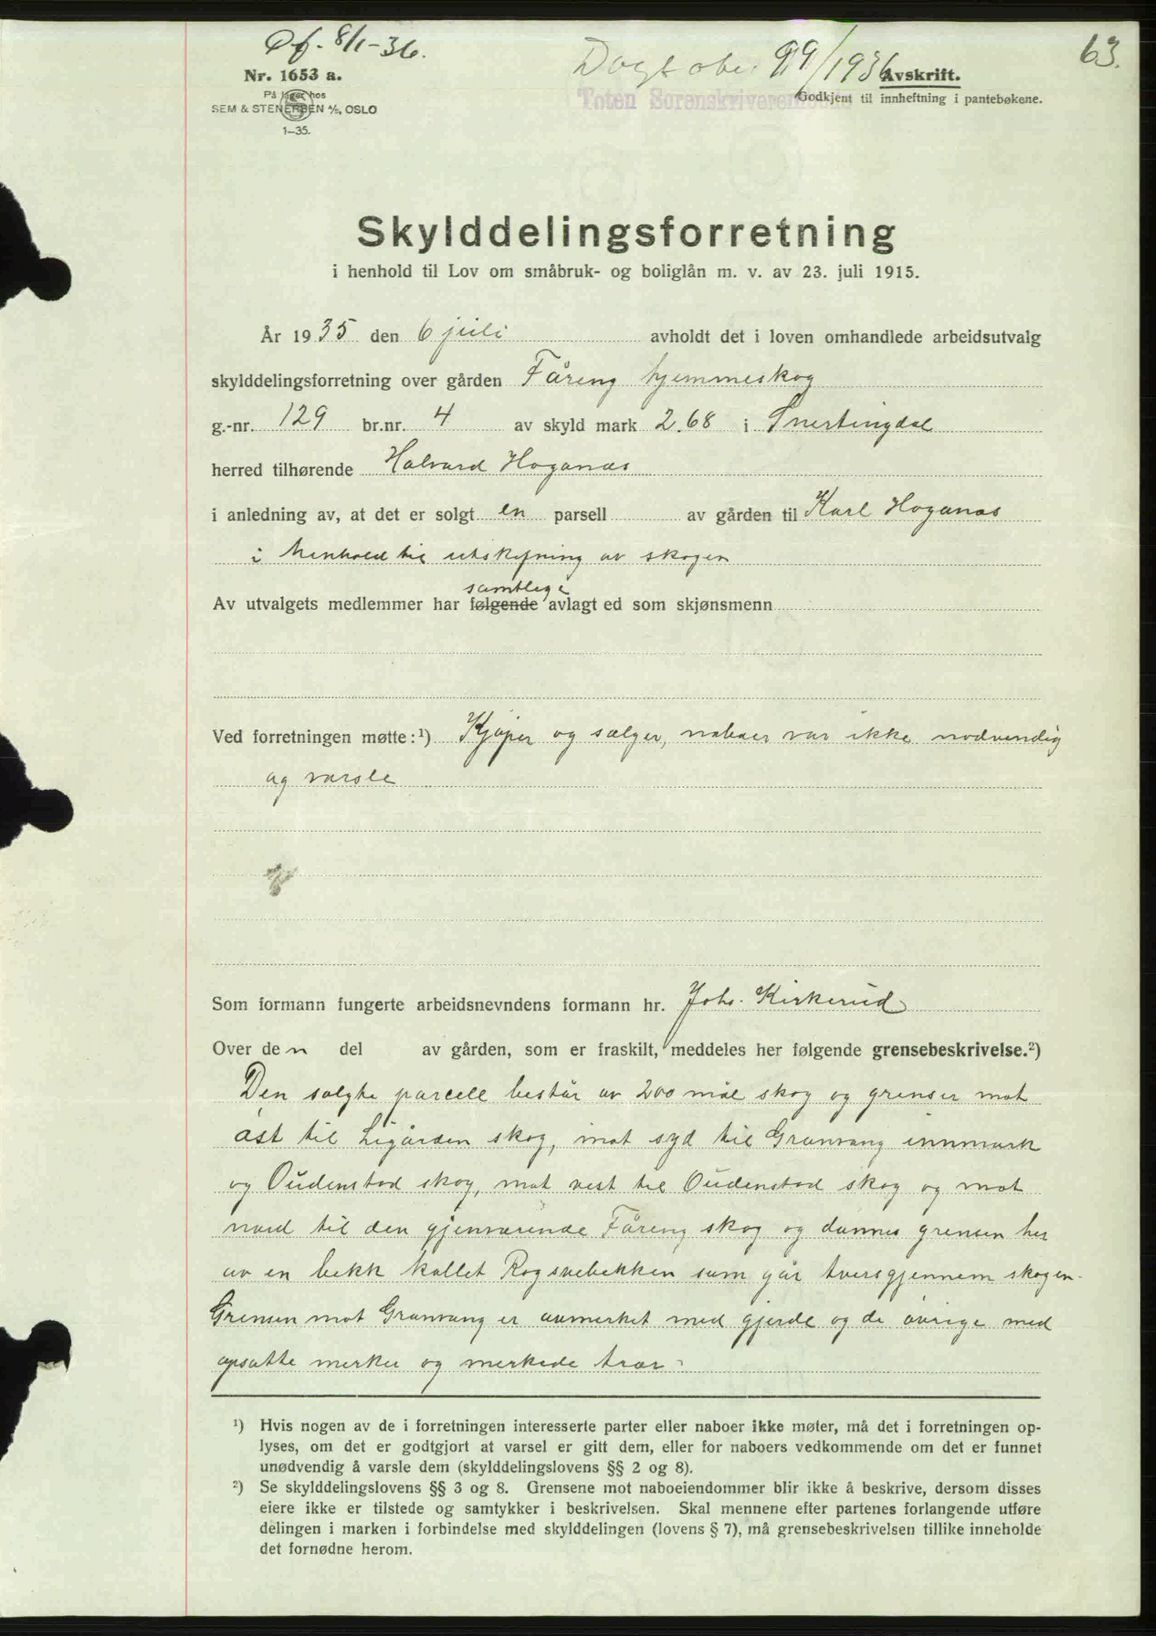 Df. 8/1-36.
Dagbokn. 99/1936
63.
Nr. 1653 a.
På lager hos
SEM & STENERSEN A/S, OSLO
1–35.
Avskrift.
Toten Sorenskriverembete
Godkjent til innheftning i pantebøkene.
Skylddelingsforretning
i henhold til Lov om småbruk- og boliglån m. v. av 23. juli 1915.
År 1935 den 6 juli avholdt det i loven omhandlede arbeidsutvalg
skylddelingsforretning over gården Fåreng hjemmeskog
g.-nr. 129 br.nr. 4 av skyld mark 2.68 i Snertingdal
herred tilhørende Halvard Hoganæs
i anledning av, at det er solgt en parsell av gården til Karl Hoganæs
i henhold til utskifning av skogen
samtlege
Av utvalgets medlemmer har følgende avlagt ed som skjønsmenn
Ved forretningen møtte:¹) Kjøper og sælger, naboer var ikke nødvendig
og varsle
Som formann fungerte arbeidsnevndens formann hr. Johs. Kirkerud
Over den del av gården, som er fraskilt, meddeles her følgende grensebeskrivelse.²)
Den solgte parcele består av 200 mål skog og grenser mot
øst til Ligården skog, mot syd til Granvang innmark
og Oudenstad skog, mot vest til Oudenstad skog og mot
nord til den gjenværende Fåreng skog og dannes grensen her
av en bekk kallet Rognebekken som går tversgjennem skogen.
Grensen mot Granvang er avmerket med gjerde og de øvrige med
opsatte merker og merkede trær.
¹) Hvis nogen av de i forretningen interesserte parter eller naboer ikke møter, må det i forretningen op-
lyses, om det er godtgjort at varsel er gitt dem, eller for naboers vedkommende om det er funnet
unødvendig å varsle dem (skylddelingslovens §§ 2 og 8).
²) Se skylddelingslovens §§ 3 og 8. Grensene mot naboeiendommer blir ikke å beskrive, dersom disses
eiere ikke er tilstede og samtykker i beskrivelsen. Skal mennene efter partenes forlangende utføre
delingen i marken i forbindelse med skylddelingen (lovens § 7), må grensebeskrivelsen tillike inneholde
det fornødne herom.